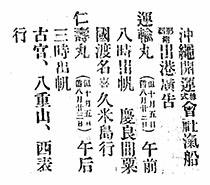 沖繩開運株式會社滊船
那覇出港廣告
運輸丸 十月五日 八月廿二日 午前
八時出帆 慶良間粟
國渡名喜久米島行
仁壽丸 十月五日 八月廿二日 午后
三時出帆
古宮、八重山、西表
行